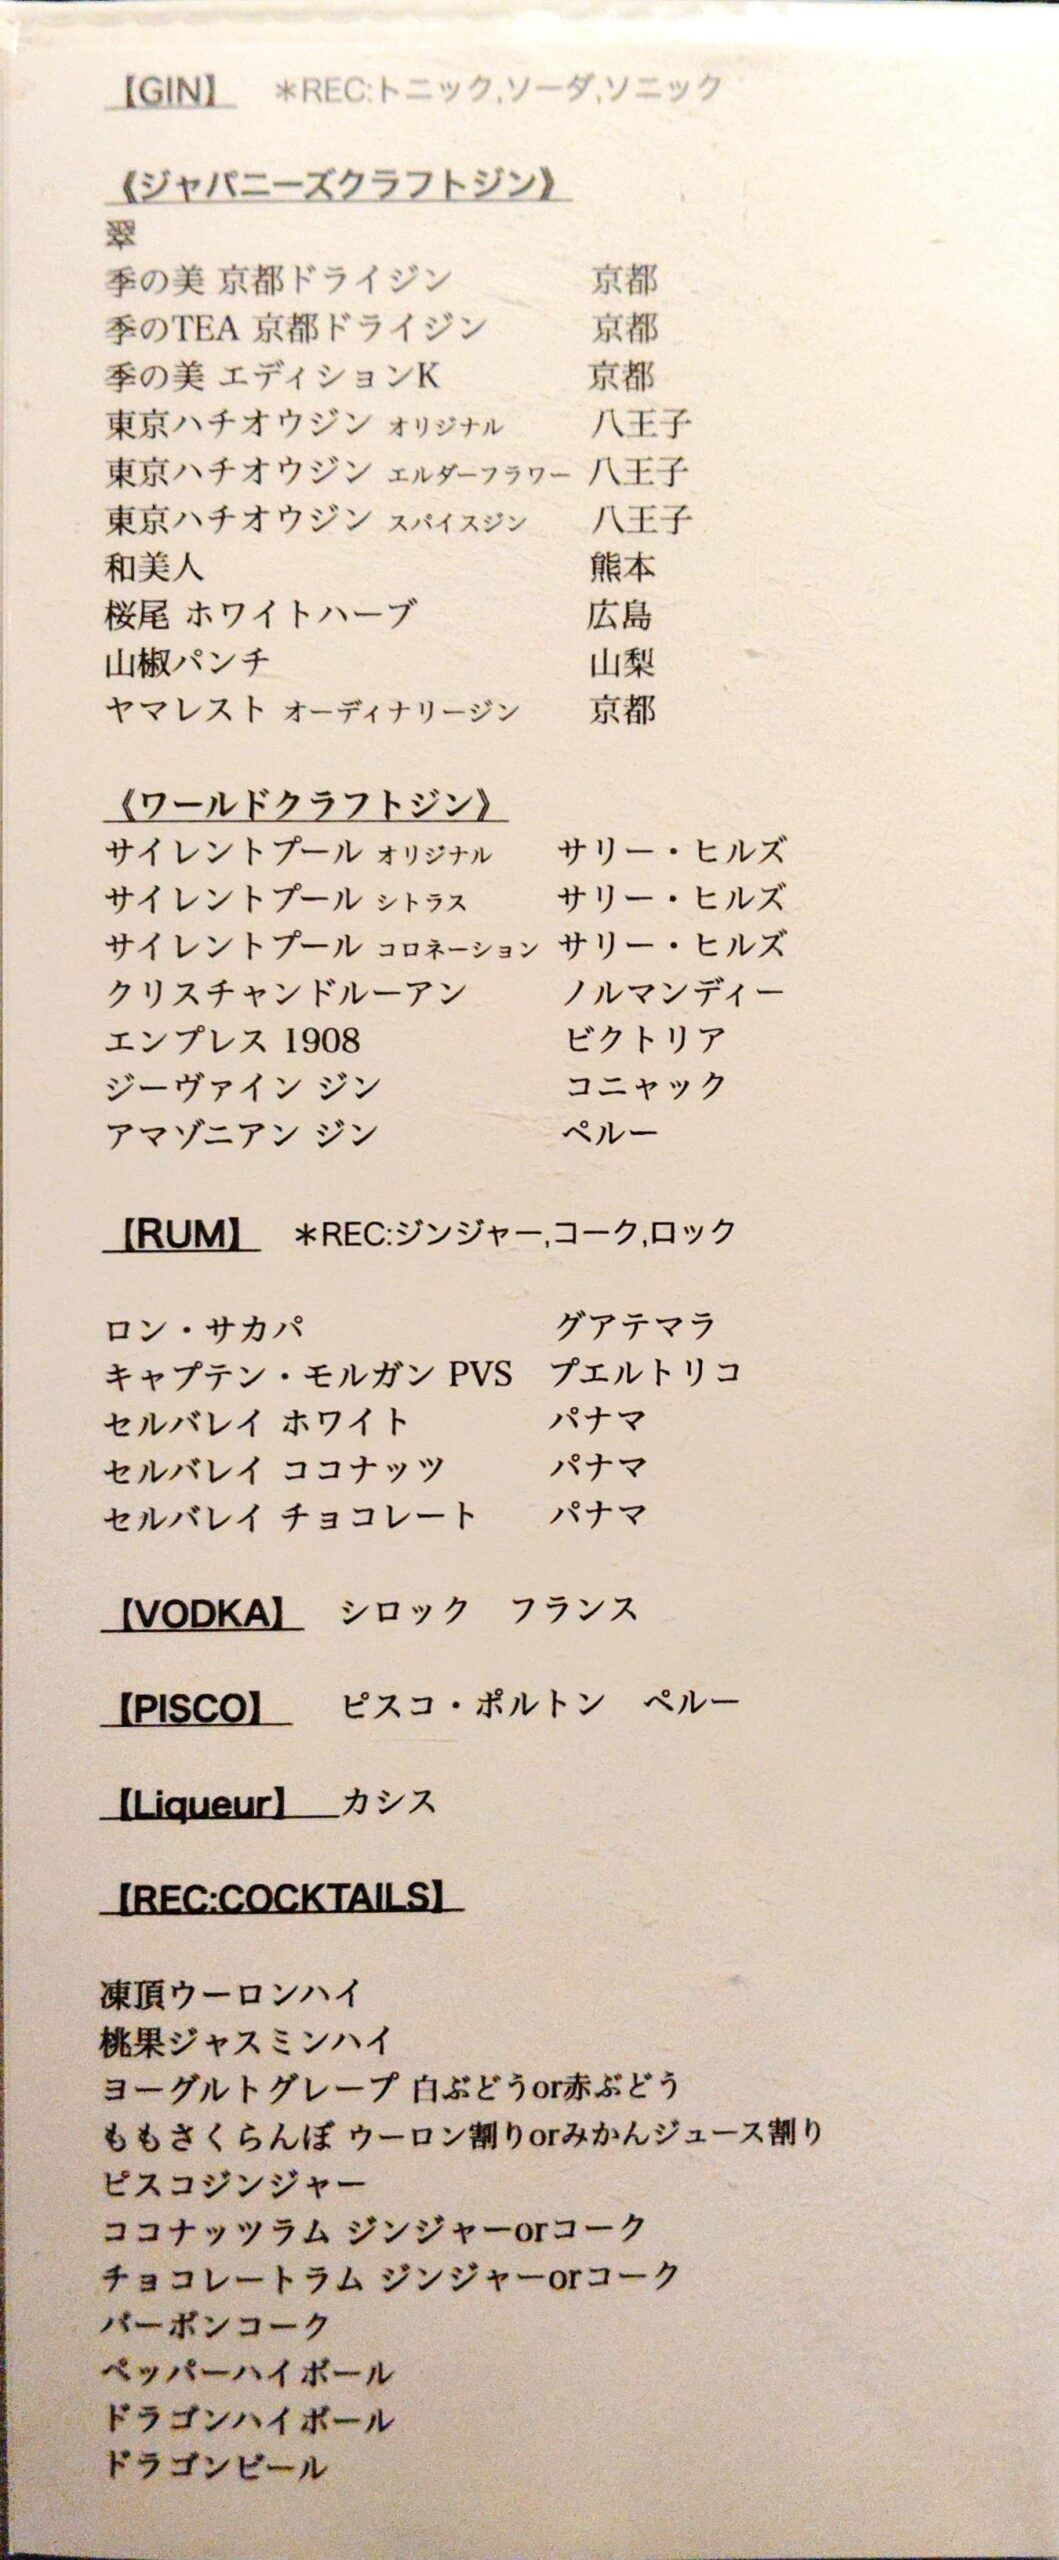 【GIN】 *REC:トニック,ソーダ,ソニック
《ジャパニーズクラフトジン》
翠
季の美 京都ドライジン 京都
季のTEA 京都ドライジン 京都
季の美 エディションK 京都
東京ハチオウジン オリジナル 八王子
東京ハチオウジン エルダーフラワー 八王子
東京ハチオウジン スパイスジン 八王子
和美人 熊本
桜尾 ホワイトハーブ 広島
山椒パンチ 山梨
ヤマレスト オーディナリージン 京都
《ワールドクラフトジン》
サイレントプール オリジナル サリー・ヒルズ
サイレントプール シトラス サリー・ヒルズ
サイレントプール コロネーション サリー・ヒルズ
クリスチャンドルーアン ノルマンディー
エンプレス 1908 ビクトリア
ジーヴァイン ジン コニャック
アマゾニアン ジン ペルー
【RUM】 *REC:ジンジャー,コーク,ロック
ロン・サカパ グアテマラ
キャプテン・モルガン PVS プエルトリコ
セルバレイ ホワイト パナマ
セルバレイ ココナッツ パナマ
セルバレイ チョコレート パナマ
【VODKA】 シロック フランス
【PISCO】 ピスコ・ポルトン ペルー
【Liqueur】 カシス
【REC:COCKTAILS】
凍頂ウーロンハイ
桃果ジャスミンハイ
ヨーグルトグレープ 白ぶどうor赤ぶどう
ももさくらんぼ ウーロン割りorみかんジュース割り
ピスコジンジャー
ココナッツラム ジンジャーorコーク
チョコレートラム ジンジャーorコーク
バーボンコーク
ペッパーハイボール
ドラゴンハイボール
ドラゴンビール